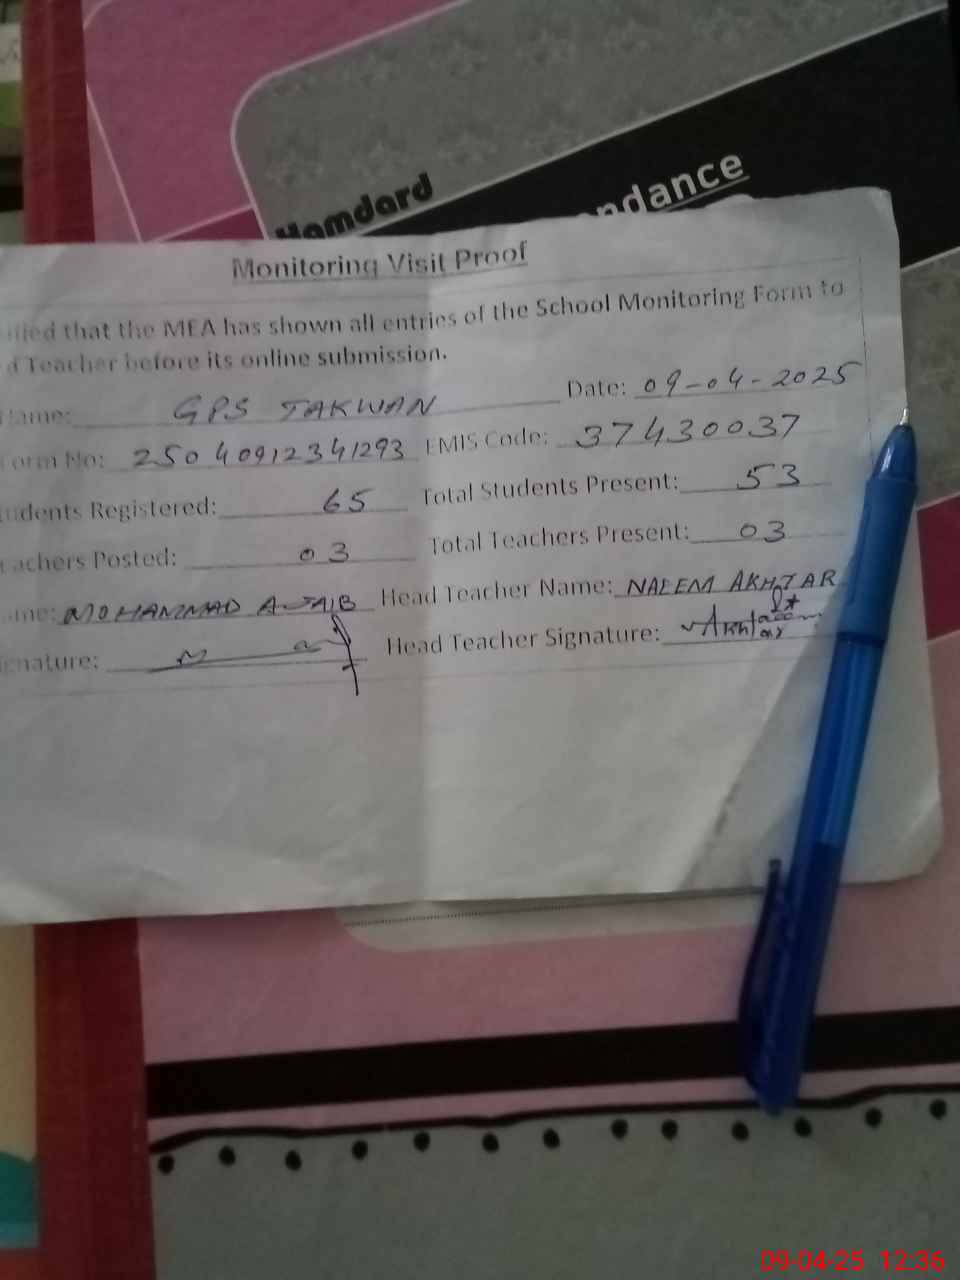 Hamdard
ndance
Monitoring Visit Proof
ified that the MEA has shown all entries of the School Monitoring Form to
d Teacher before its online submission.
Name: GPS TAKWAN Date: 09-04-2025
Form No: 25040912341293 EMIS Code: 37430037
tudents Registered: 65 Total Students Present: 53
eachers Posted: 03 Total Teachers Present: 03
ame: MOHAMMAD AJAIB Head Teacher Name: NAEEM AKHTAR
ignature: Head Teacher Signature:
09-04-25 12:36